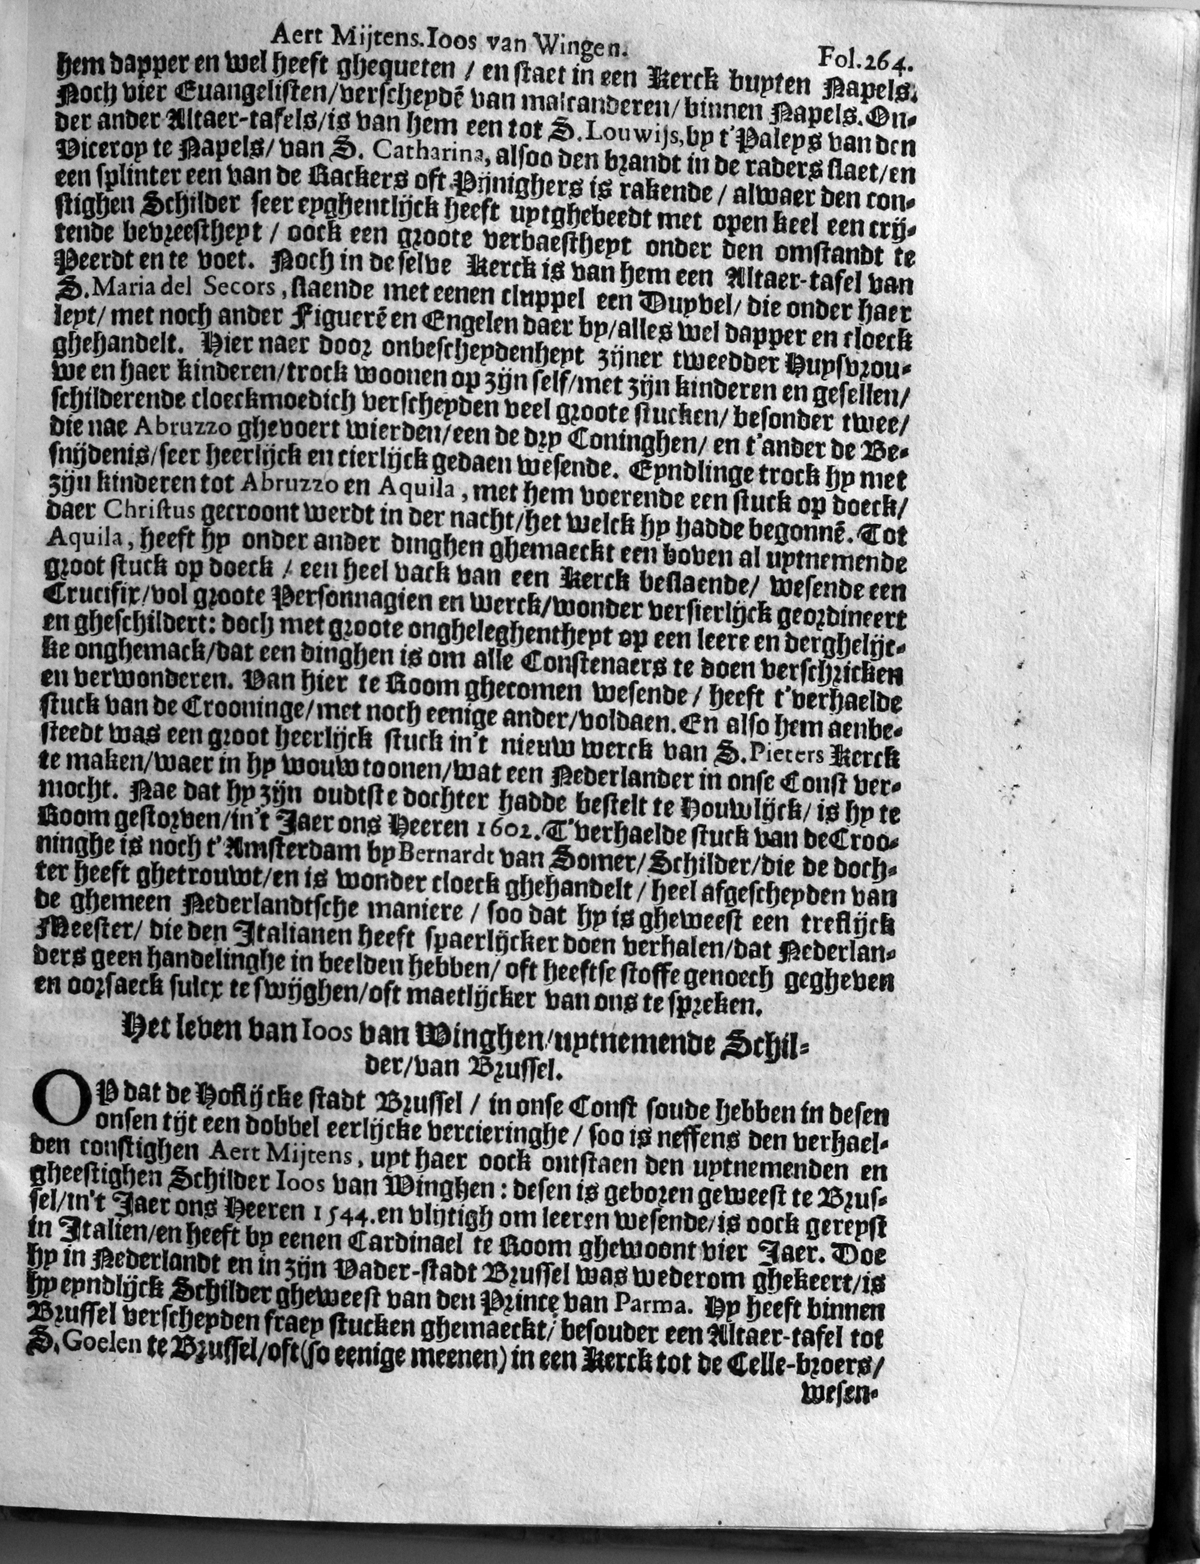 Aert Mijtens. Ioos van Wingen. Fol. 264.
hem dapper en wel heeft ghequeten / en staet in een Kerck buyten Napels.
Noch vier Euangelisten / verscheydē van malcanderen / binnen Napels. On-
der ander Altaer-tafels / is van hem een tot S. Louwijs, by t'Paleys van den
Viceroy te Napels / van S. Catharina, alsoo den brandt in de raders slaet / en
een splinter een van de Rackers oft Pijnighers is rakende / alwaer den con-
stighen Schilder seer eyghentlijck heeft uytghebeedt met open keel een crij-
tende bevreestheyt / oock een groote verbaestheyt onder den omstandt te
Peerdt en te voet. Noch in de selve Kerck is van hem een Altaer-tafel van
S. Maria del Secors, slaende met eenen cluppel een Duyvel / die onder haer
leyt / met noch ander Figuerē en Engelen daer by / alles wel dapper en cloeck
ghehandelt. Hier naer door onbescheydenheyt zijner tweedder Huysvrou-
we en haer kinderen / trock woonen op zijn self / met zijn kinderen en gesellen /
schilderende cloeckmoedich verscheyden veel groote stucken / besonder twee /
die nae Abruzzo ghevoert wierden / een de dry Coninghen / en t'ander de Be-
snijdenis / seer heerlijck en cierlijck gedaen wesende. Eyndlinge trock hy met
zijn kinderen tot Abruzzo en Aquila, met hem voerende een stuck op doeck /
daer Christus gecroont werdt in der nacht / het welck hy hadde begonnē. Tot
Aquila, heeft hy onder ander dinghen ghemaeckt een boven al uytnemende
groot stuck op doeck / een heel vack van een Kerck beslaende / wesende een
Crucifix / vol groote Personnagien en werck / wonder versierlijck geordineert
en gheschildert: doch met groote ongheleghentheyt op een leere en derghelijc-
ke onghemack / dat een dinghen is om alle Constenaers te doen verschricken
en verwonderen. Van hier te Room ghecomen wesende / heeft t'verhaelde
stuck van de Crooninge / met noch eenige ander / voldaen. En also hem aenbe-
steedt was een groot heerlijck stuck in't nieuw werck van S. Pieters Kerck
te maken / waer in hy wouw toonen / wat een Nederlander in onse Const ver-
mocht. Nae dat hy zijn oudtste dochter hadde bestelt te Houwlijck / is hy te
Room gestorven / in't Jaer ons Heeren 1602. T'verhaelde stuck van de Croo-
ninghe is noch t'Amsterdam by Bernardt van Somer / Schilder / die de doch-
ter heeft ghetrouwt / en is wonder cloeck ghehandelt / heel afgescheyden van
de ghemeen Nederlandtsche maniere / soo dat hy is gheweest een treflijck
Meester / die den Italianen heeft spaerlijcker doen verhalen / dat Nederlan-
ders geen handelinghe in beelden hebben / oft heeftse stoffe genoech gegheven
en oorsaeck sulcx te swijghen / oft maetlijcker van ons te spreken.
Het leven van Ioos van Winghen / uytnemende Schil-
der / van Brussel.
OP dat de Hoflijcke stadt Brussel / in onse Const soude hebben in desen
onsen tijt een dobbel eerlijcke vercieringhe / soo is neffens den verhael-
den constighen Aert Mijtens, uyt haer oock ontstaen den uytnemenden en
gheestighen Schilder Ioos van Winghen: desen is geboren geweest te Brus-
sel / in't Jaer ons Heeren 1544. en vlijtigh om leeren wesende / is oock gereyst
in Italien / en heeft by eenen Cardinael te Room ghewoont vier Jaer. Doe
hy in Nederlandt en in zijn Vader-stadt Brussel was wederom ghekeert / is
hy eyndlijck Schilder gheweest van den Prince van Parma. Hy heeft binnen
Brussel verscheyden fraey stucken ghemaeckt / besonder een Altaer-tafel tot
S. Goelen te Brussel / oft (so eenige meenen) in een Kerck tot de Celle-broers /
wesen-